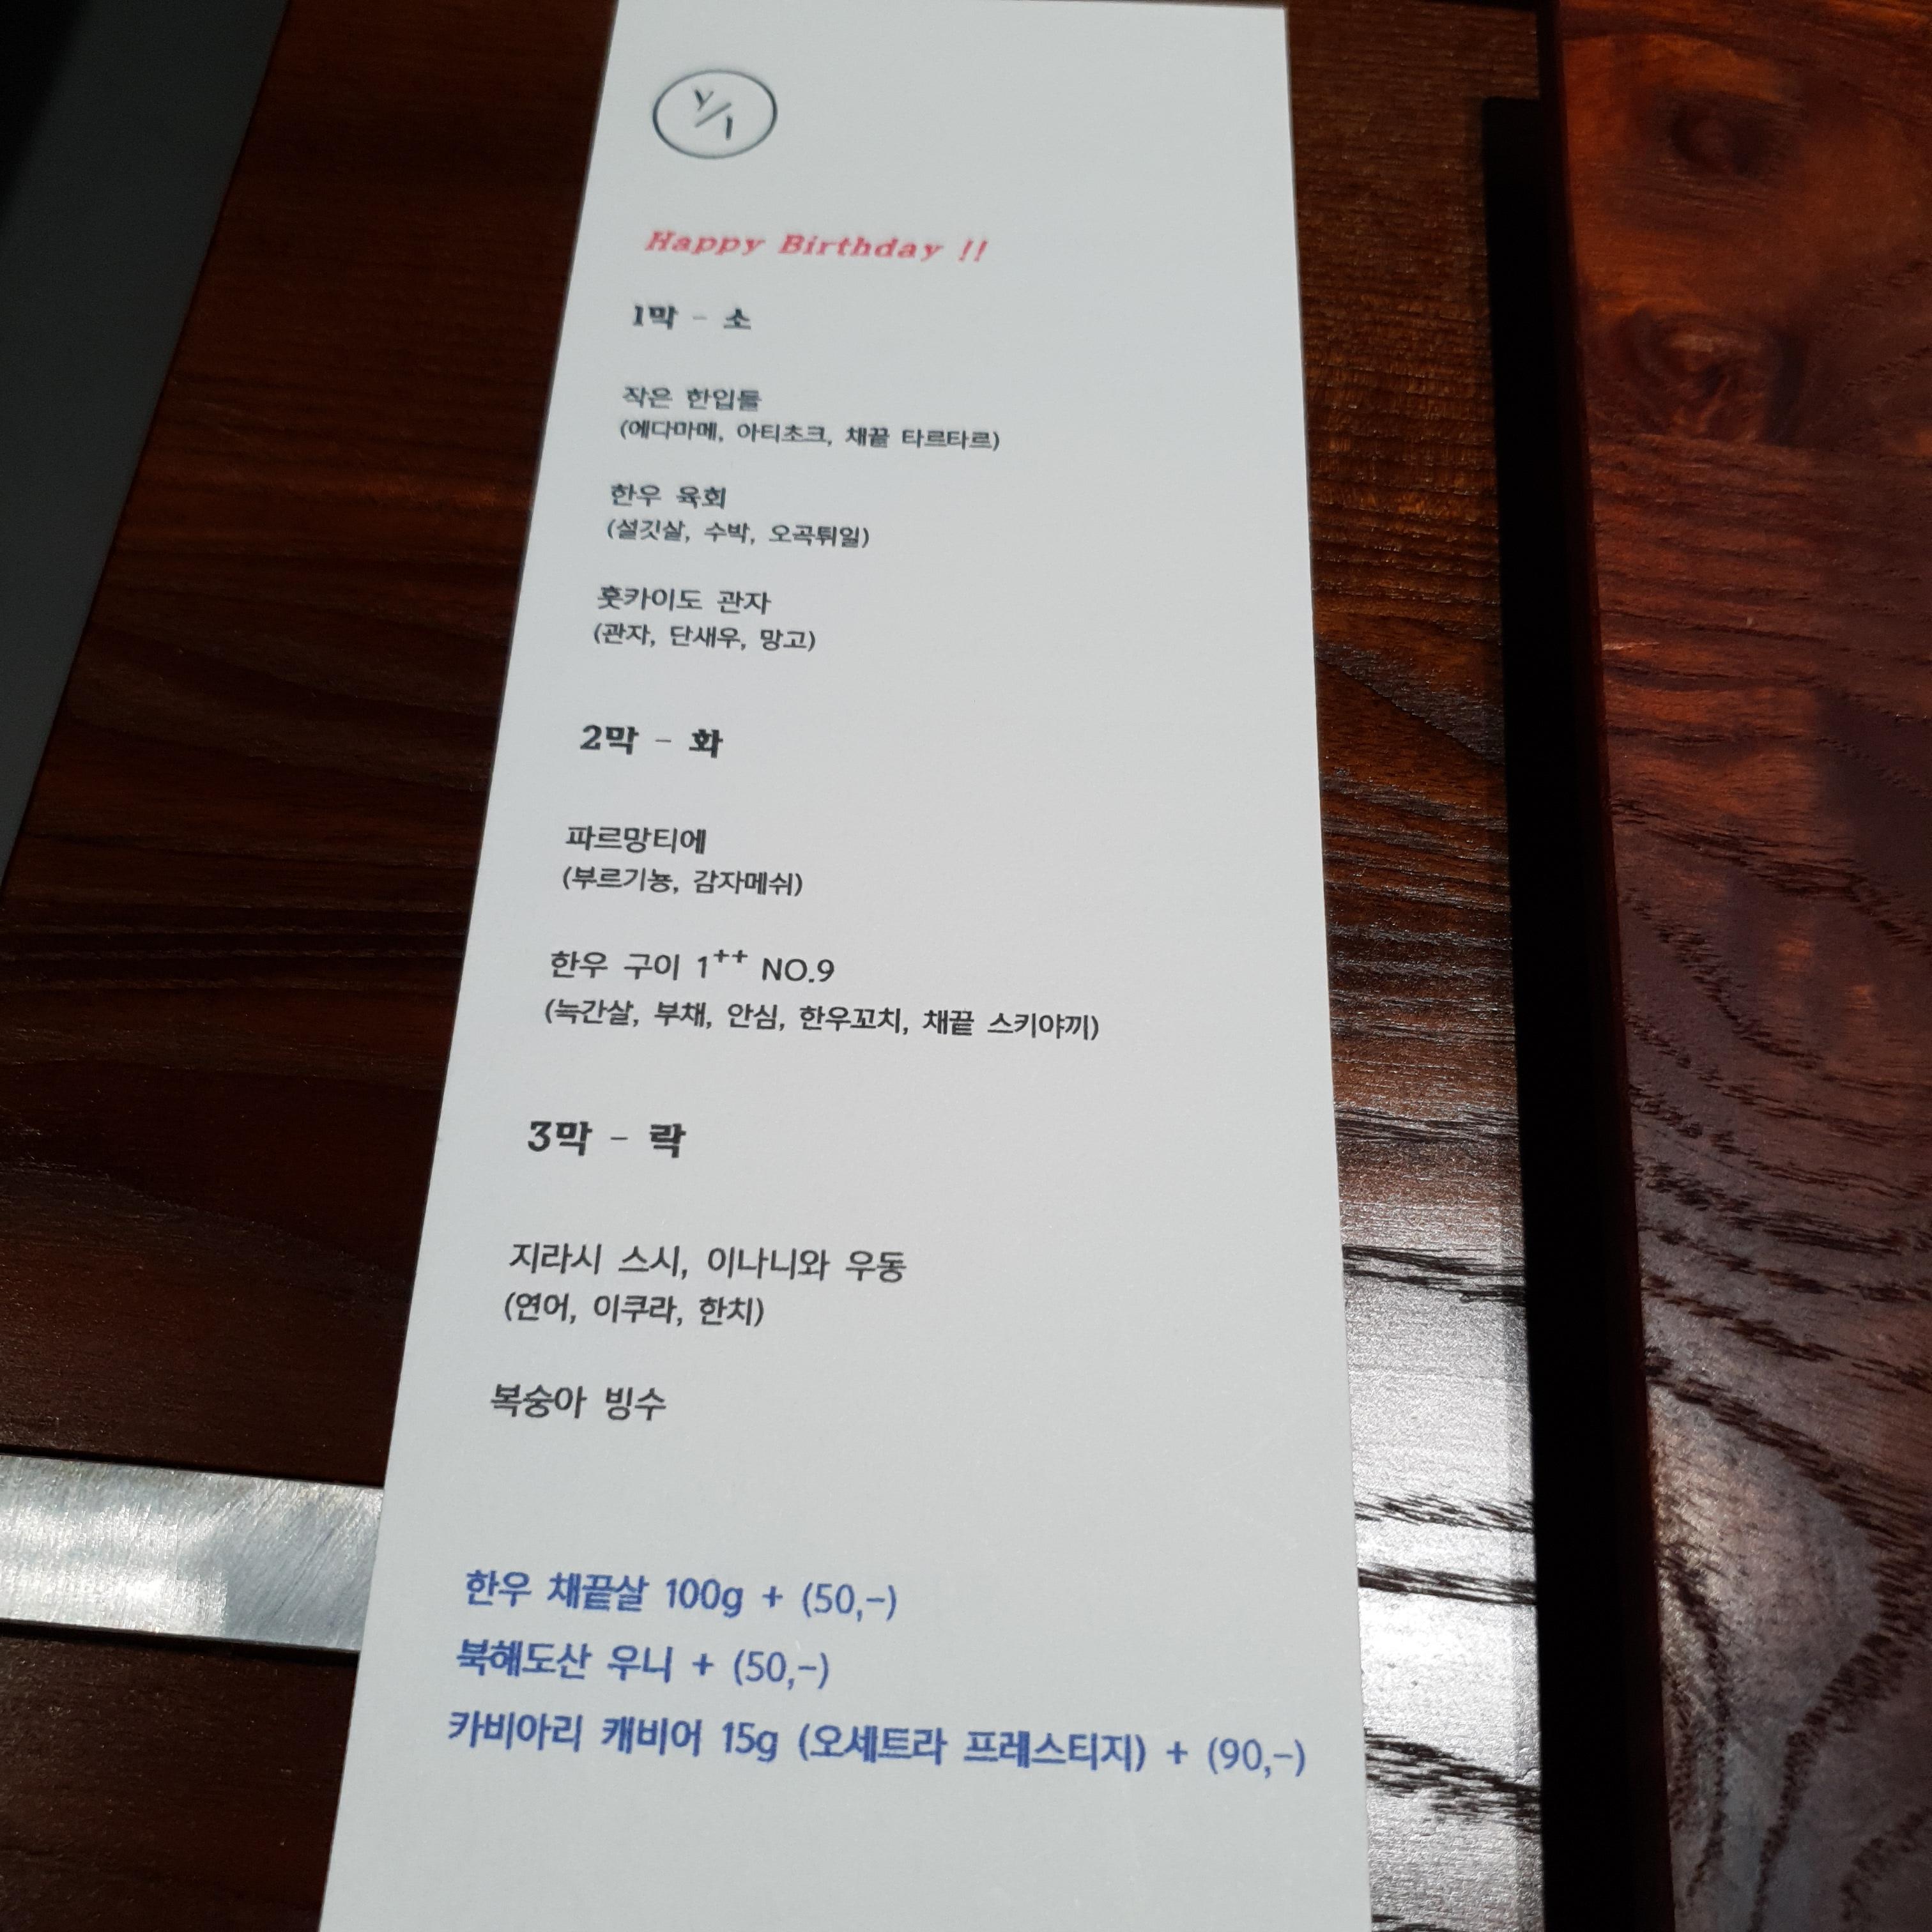 Y/1
Happy Birthday !!
1막 - 소
작은 한입들
(에다마메, 아티초크, 채끝 타르타르)
한우 육회
(설깃살, 수박, 오곡튀일)
홋카이도 관자
(관자, 단새우, 망고)
2막 - 화
파르망티에
(부르기뇽, 감자메쉬)
한우 구이 1++ NO.9
(늑간살, 부채, 안심, 한우꼬치, 채끝 스키야끼)
3막 - 락
지라시 스시, 이나니와 우동
(연어, 이쿠라, 한치)
복숭아 빙수
한우 채끝살 100g + (50,-)
북해도산 우니 + (50,-)
카비아리 캐비어 15g (오세트라 프레스티지) + (90,-)